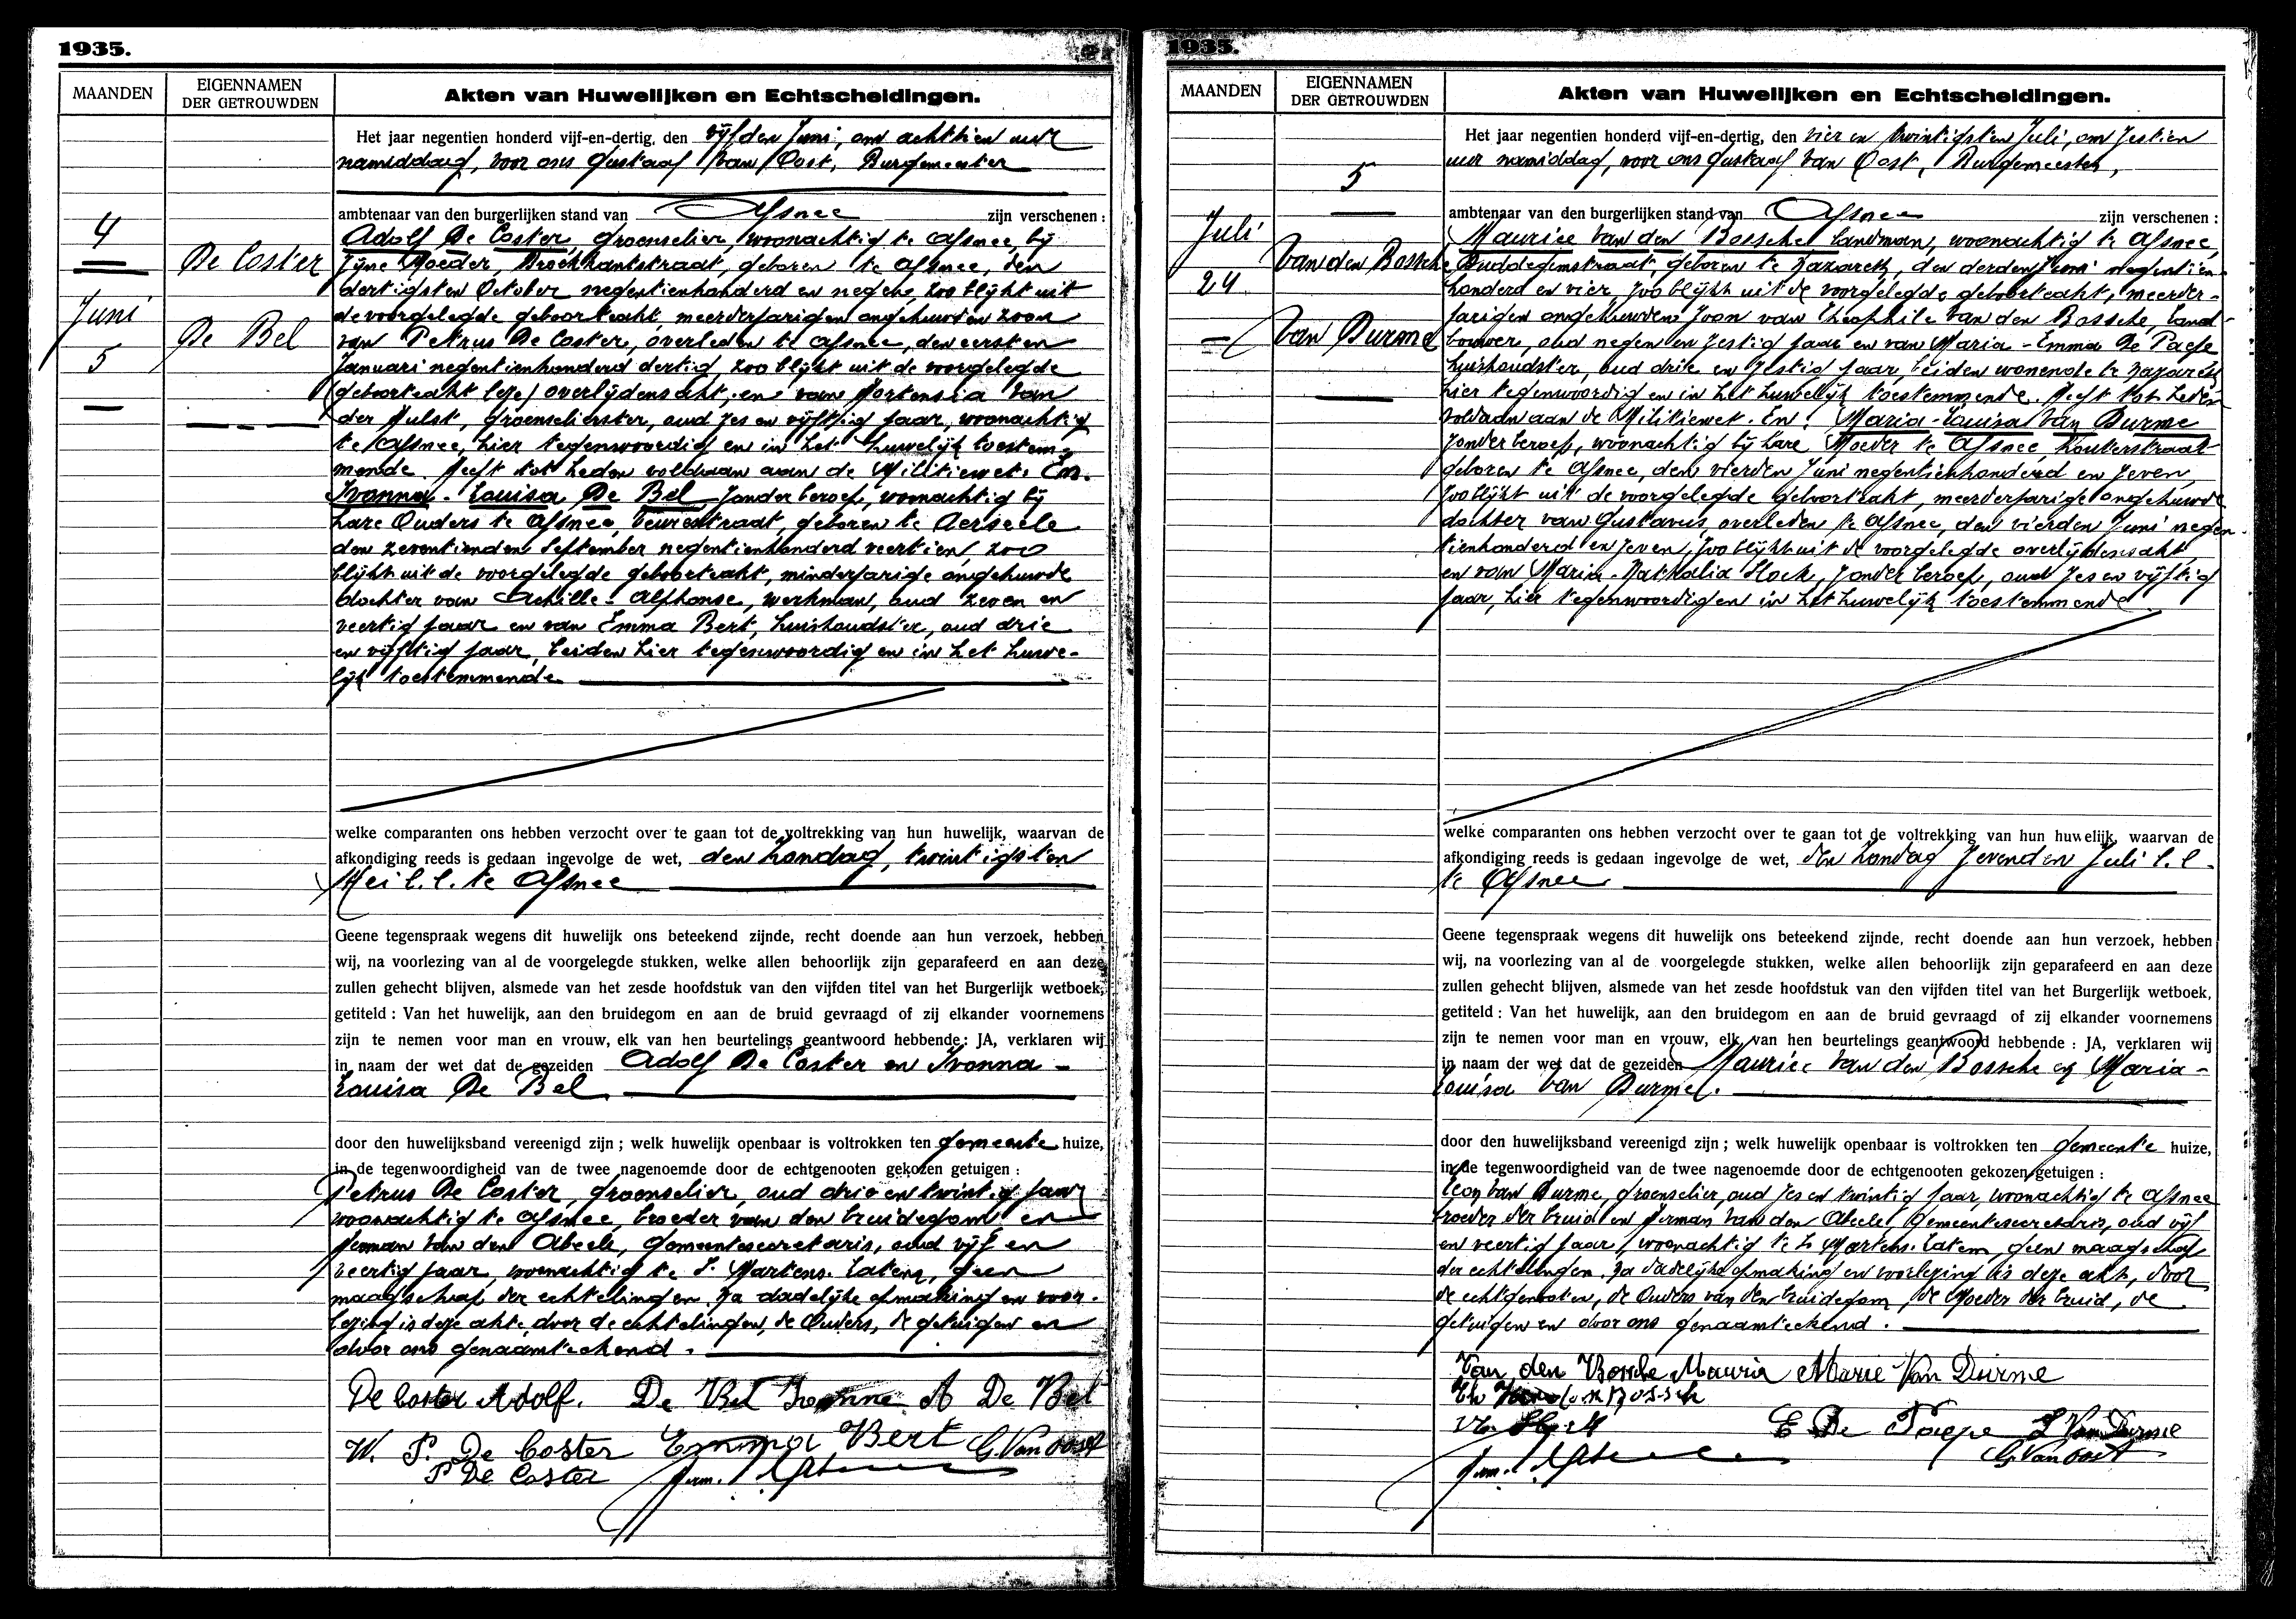 1935.
MAANDEN
EIGENNAMEN
DER GETROUWDEN
Akten van Huwelijken en Echtscheidingen.
4
Juni
5
De Coster
De Bel
Het jaar negentien honderd vijf-en-dertig, den vijfden Juni, om achttien uur
namiddag, voor ons Gustaaf Van Oost, Burgemeester
ambtenaar van den burgerlijken stand van Afsnee zijn verschenen :
Adolf De Coster, groenselier, woonachtig te Afsnee, bij
zijne Moeder, Broekkantstraat, geboren te Afsnee, den
dertigsten October negentienhonderd en negen, zoo blijkt uit
de voorgelegde geboorteakt, meerderjarigen ongehuwden zoon
van Petrus De Coster, overleden te Afsnee, den eersten
Januari negentienhonderd dertig, zoo blijkt uit de voorgelegde
(geboorteakt leze) overlijdensakt, en van Hortensia Van
der Hulst, groenselierster, oud zes en vijftig jaar, woonachtig
te Afsnee, hier tegenwoordig en in het huwelijk toestem-
mende. Heeft tot heden voldaan aan de Militiewet. En.
Ivonna-Louisa De Bel zonder beroep, woonachtig bij
hare Ouders te Afsnee, Beurestraat, geboren te Aerseele
den zeventienden September negentienhonderd veertien, zoo
blijkt uit de voorgelegde geboorteakt, minderjarige ongehuwde
dochter van Achille-Alfhonse, werkman, oud zeven en
veertig jaar en van Emma Bert, huishoudster, oud drie
en vijftig jaar, beiden hier tegenwoordig en in het huwe-
lijk toestemmende
welke comparanten ons hebben verzocht over te gaan tot de voltrekking van hun huwelijk, waarvan de
afkondiging reeds is gedaan ingevolge de wet, den Zondag, twintigsten
Mei l.l. te Afsnee
Geene tegenspraak wegens dit huwelijk ons beteekend zijnde, recht doende aan hun verzoek, hebben
wij, na voorlezing van al de voorgelegde stukken, welke allen behoorlijk zijn geparafeerd en aan deze
zullen gehecht blijven, alsmede van het zesde hoofdstuk van den vijfden titel van het Burgerlijk wetboek,
getiteld : Van het huwelijk, aan den bruidegom en aan de bruid gevraagd of zij elkander voornemens
zijn te nemen voor man en vrouw, elk van hen beurtelings geantwoord hebbende : JA, verklaren wij
in naam der wet dat de gezeiden Adolf De Coster en Ivonna-
Louisa De Bel
door den huwelijksband vereenigd zijn ; welk huwelijk openbaar is voltrokken ten gemeente huize,
in de tegenwoordigheid van de twee nagenoemde door de echtgenooten gekozen getuigen :
Petrus De Coster, groenselier, oud drie en twintig jaar
woonachtig te Afsnee, broeder van den bruidegom en
Herman Van den Abeele, Gemeentesecretaris, oud vijf en
veertig jaar, woonachtig te St Martens-Latem, geen
maagschap der echtelingen. Na dadelijke opmaking en voor-
lezing is deze akte, door de echtelingen, de Ouders, de getuigen en
door ons genaamteekend.
De Coster Adolf. De Bel Ivonne A De Bel
W. P. De Coster Emma Bert G. Van Oost
P De Coster
1935.
MAANDEN
EIGENNAMEN
DER GETROUWDEN
Akten van Huwelijken en Echtscheidingen.
5
Juli
24
Van den Bossche
Van Durme
Het jaar negentien honderd vijf-en-dertig, den vier en twintigsten Juli, om zestien
uur namiddag, voor ons Gustaaf Van Oost, Burgemeester,
ambtenaar van den burgerlijken stand van Afsnee zijn verschenen :
Maurice Van den Bossche landman, woonachtig te Afsnee,
Duddegemstraat, geboren te Nazareth, den derden Juni negentien-
honderd en vier, zoo blijkt uit de voorgelegde geboorteakt, meerder-
jarigen ongehuwden zoon van Theophile Van den Bossche, land-
bouwer, oud negen en zestig jaar en van Maria-Emma De Paepe
huishoudster, oud drie en zestig jaar, beiden wonende te Nazareth
hier tegenwoordig en in het huwelijk toestemmende. Heeft tot heden
voldaan aan de Militiewet. En : Maria-Louisa Van Durme
zonder beroep, woonachtig bij hare Moeder te Afsnee, Kouterstraat
geboren te Afsnee, den vierden Juni negentienhonderd en zeven,
zoo blijkt uit de voorgelegde geboorteakt, meerderjarige ongehuwde
dochter van Gustavus, overleden te Afsnee, den vierden Juni negen-
tienhonderd en zeven, zoo blijkt uit de voorgelegde overlijdensakt
en van Maria-Nathalia Hoek, zonder beroep, oud zes en vijftig
jaar, hier tegenwoordig en in het huwelijk toestemmende
welke comparanten ons hebben verzocht over te gaan tot de voltrekking van hun huwelijk, waarvan de
afkondiging reeds is gedaan ingevolge de wet, den Zondag zevenden Juli l.l.
te Afsnee
Geene tegenspraak wegens dit huwelijk ons beteekend zijnde, recht doende aan hun verzoek, hebben
wij, na voorlezing van al de voorgelegde stukken, welke allen behoorlijk zijn geparafeerd en aan deze
zullen gehecht blijven, alsmede van het zesde hoofdstuk van den vijfden titel van het Burgerlijk wetboek,
getiteld : Van het huwelijk, aan den bruidegom en aan de bruid gevraagd of zij elkander voornemens
zijn te nemen voor man en vrouw, elk van hen beurtelings geantwoord hebbende : JA, verklaren wij
in naam der wet dat de gezeiden Maurice Van den Bossche en Maria-
Louisa Van Durme.
door den huwelijksband vereenigd zijn ; welk huwelijk openbaar is voltrokken ten gemeente huize,
in de tegenwoordigheid van de twee nagenoemde door de echtgenooten gekozen getuigen :
Leon Van Durme, groenselier, oud zes en twintig jaar, woonachtig te Afsnee
broeder der bruid en Herman Van den Abeele, Gemeentesecretaris, oud vijf
en veertig jaar, woonachtig te St Martens-Latem, geen maagschap
der echtelingen. Na dadelijke opmaking en voorlezing is deze akt, door
de echtgenooten, de Ouders van den bruidegom, de Moeder der bruid, de
getuigen en door ons genaamteekend.
Van den Bossche Mauric Marie Van Durme
Th Van den Bossch
E De Paepe L Van Durme
G. Van Oost